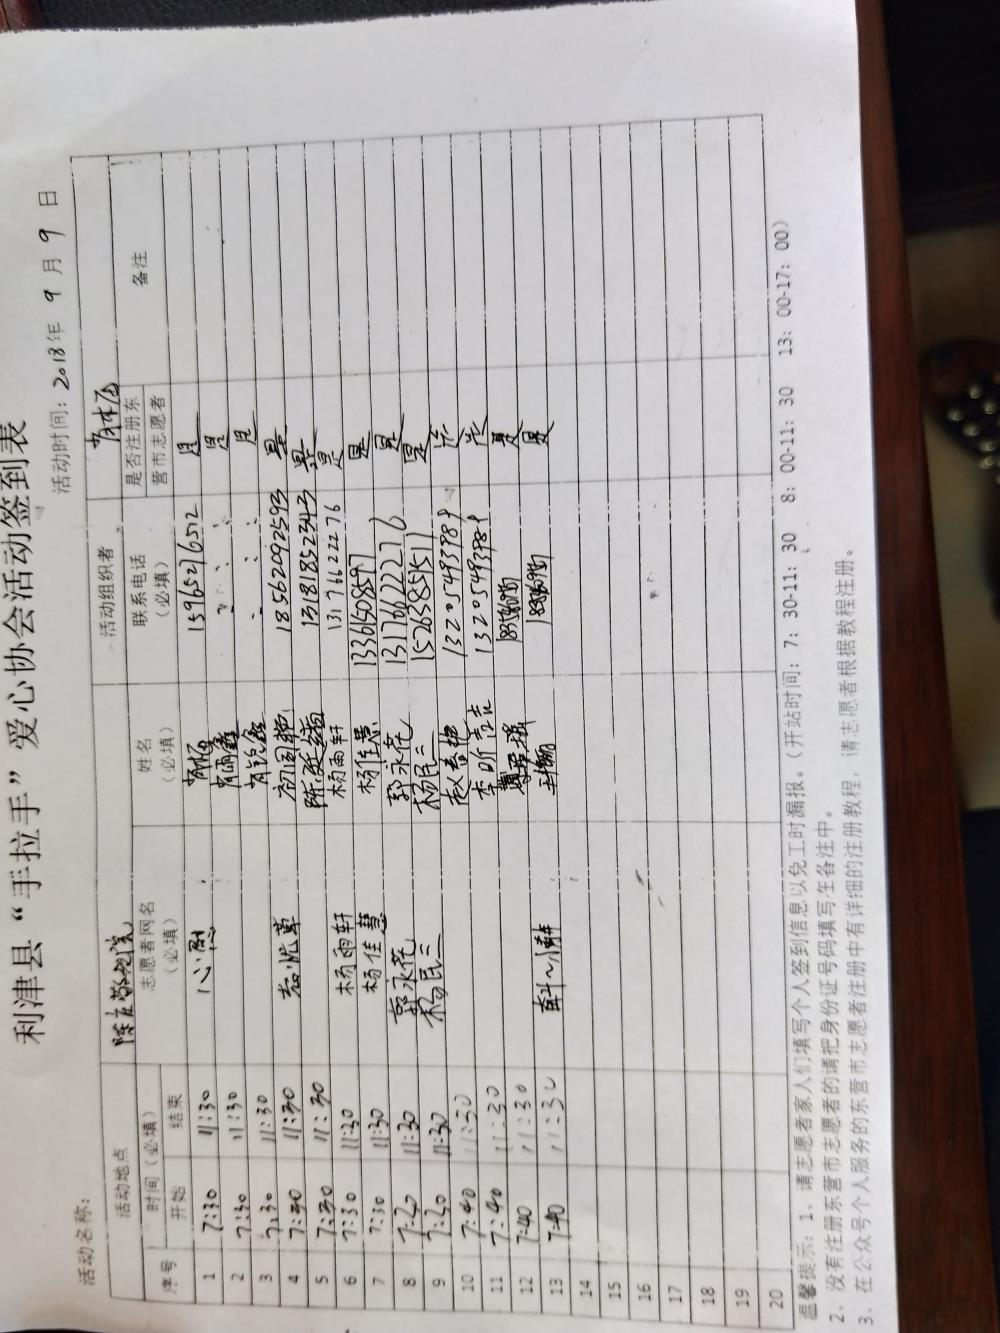 利津县“手拉手”爱心协会活动签到表
活动名称: 活动时间: 2018年 9月 9日
活动地点 陈庄敬老院 活动组织者
序号 时间(必填) 志愿者网名 姓名 联系电话 是否注册东 备注
开始 结束 (必填) (必填) (必填) 营市志愿者
1 7:30 11:30 15965216512 是
2 7:30 11:30 是
3 7:30 11:30 是
4 7:30 11:30 18562092593 是
5 7:30 11:30 13181852343 是
6 7:30 11:30 杨雨轩 杨雨轩 13176622276 是
7 7:30 11:30 杨佳慧 杨佳慧 13361508597 是
8 7:20 11:30 郭永花 郭永花 13176622276 是
9 7:20 11:30 杨民三 杨民三 15263851517 是
10 7:40 11:30 赵春艳 13205493989
11 7:40 11:30 13205493989
12 7:40 11:30 是
13 7:40 11:30 是
14
15
16
17
18
19
20
温馨提示: 1、请志愿者家人们填写个人签到信息以免工时漏报。(开站时间: 7: 30-11: 30 8: 00-11: 30 13: 00-17: 00)
2、没有注册东营市志愿者的请把身份证号码填写在备注中。
3、在公众号个人服务的东营市志愿者注册中有详细的注册教程, 请志愿者根据教程注册。